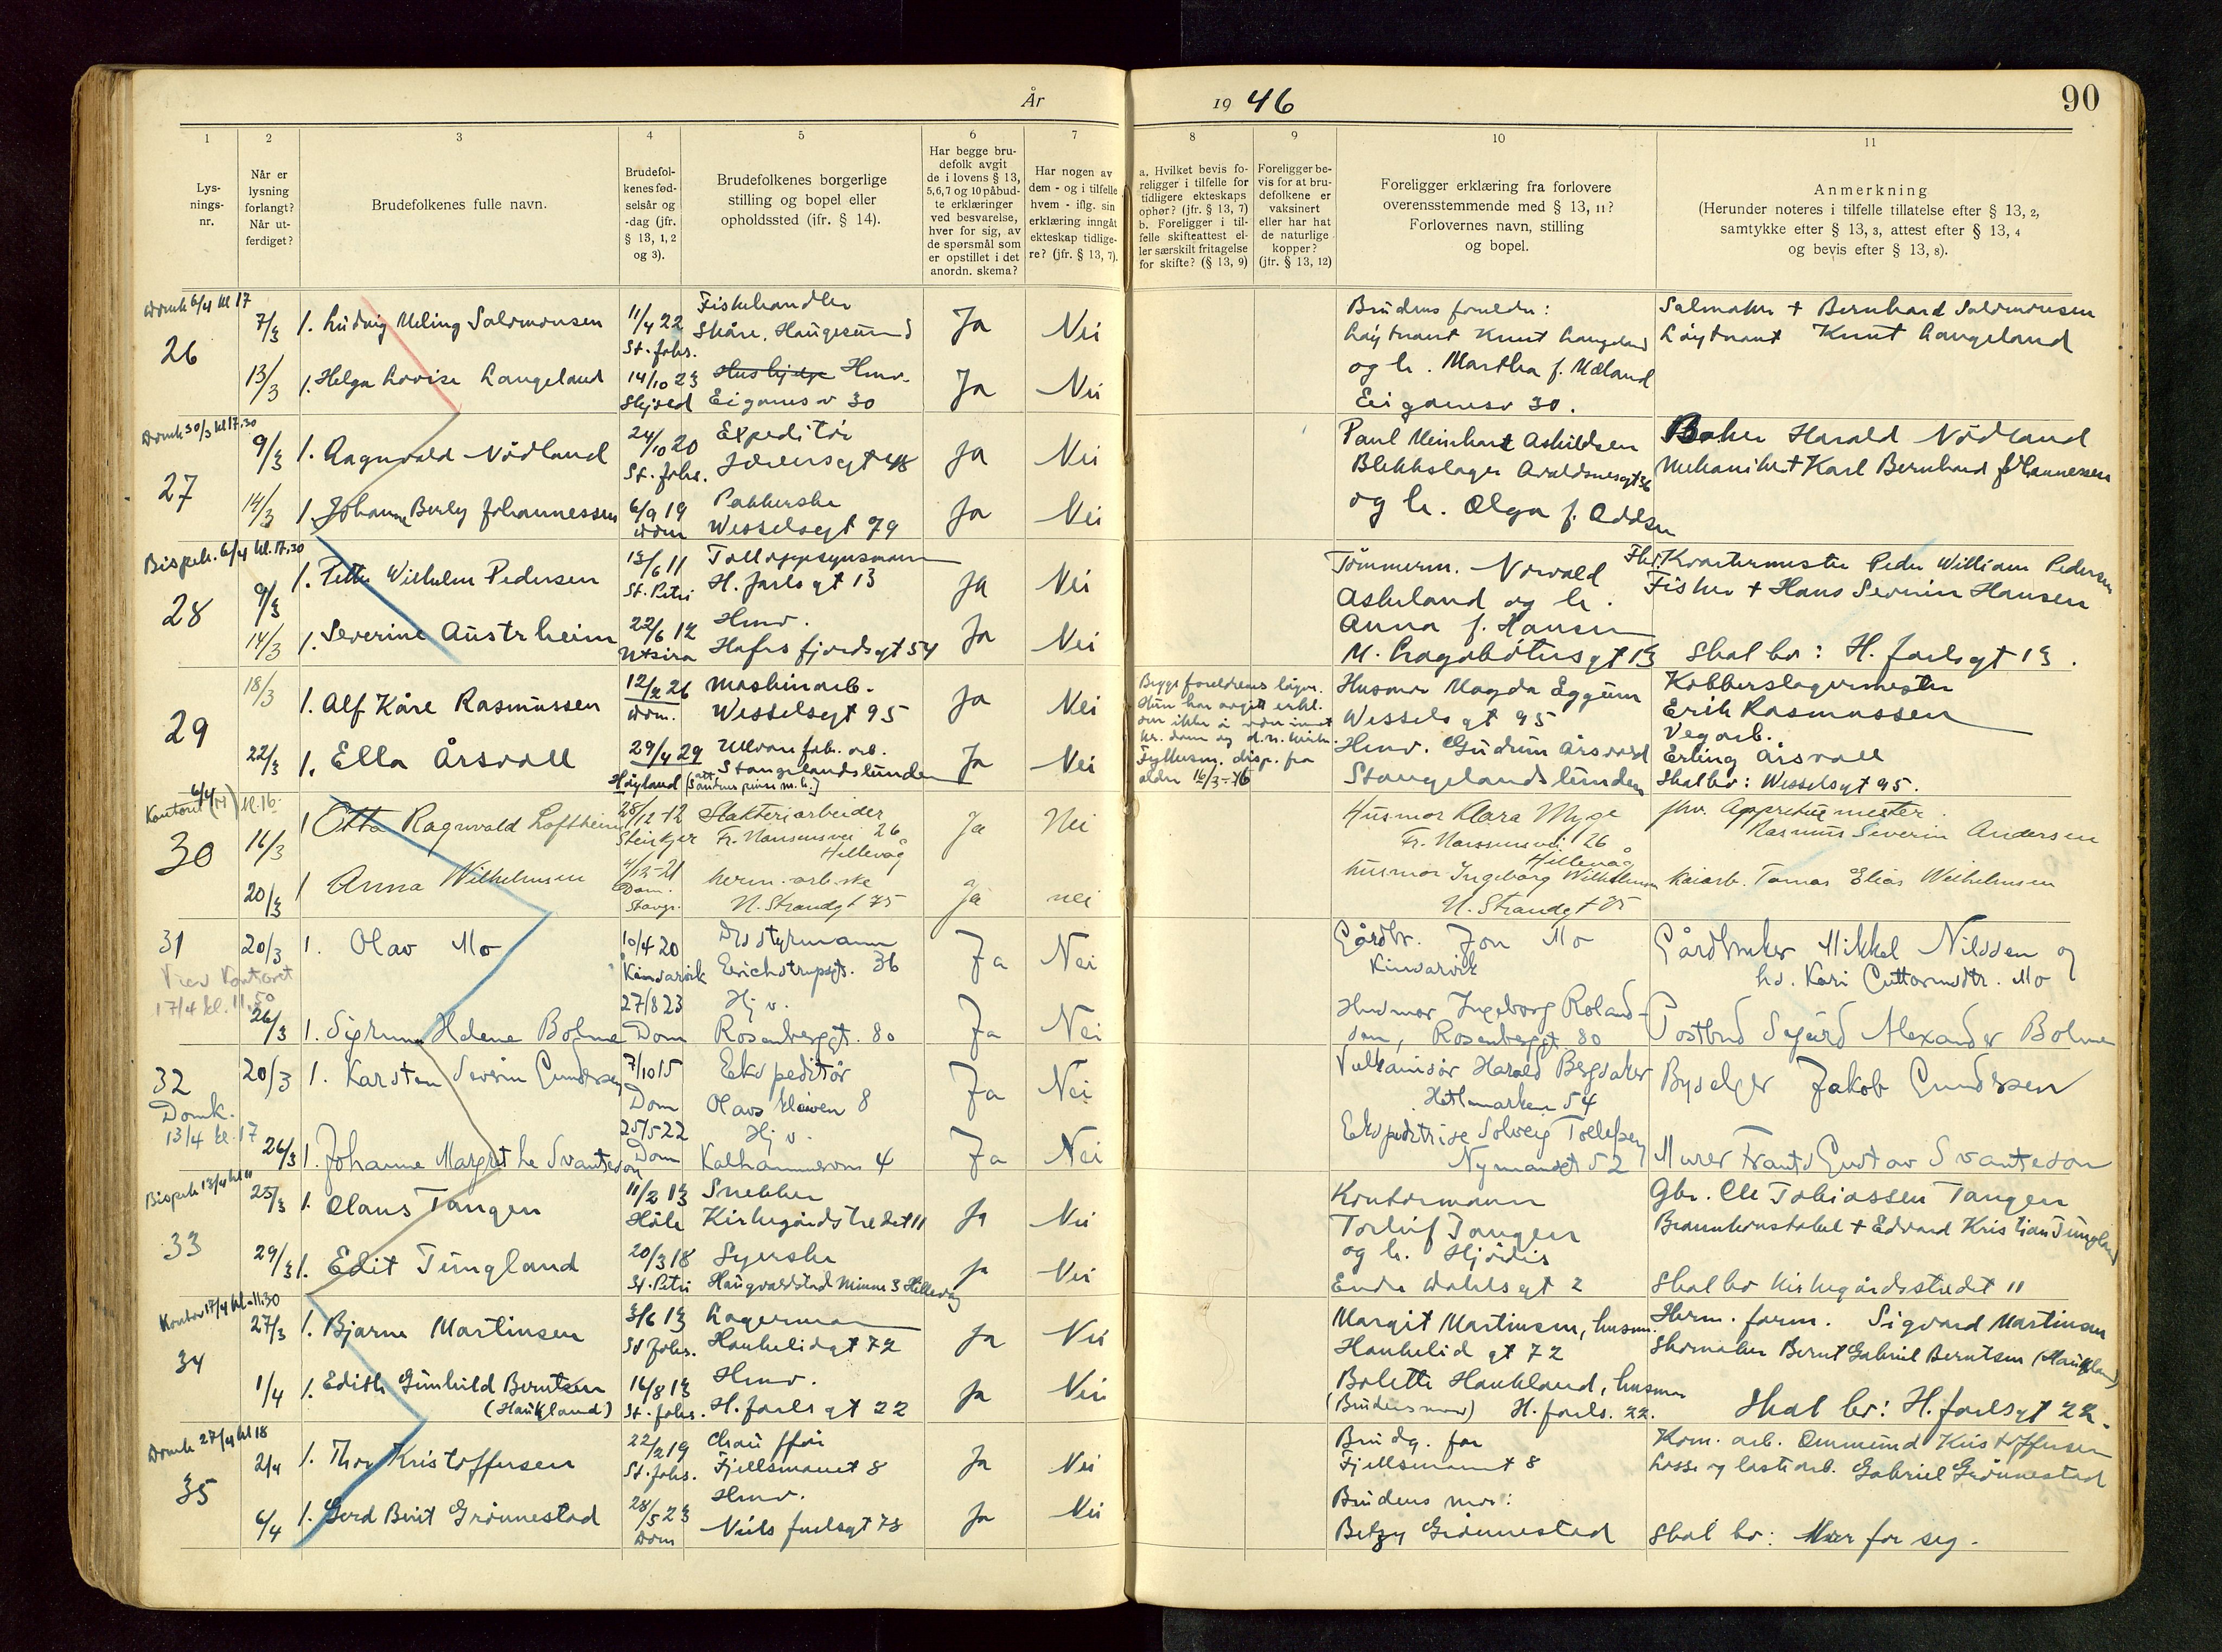 År 19 46
90
1
2
3
4
5
6
7
8
9
10
11
Lys-
nings-
nr.
Når er
lysning
forlangt?
Når ut-
ferdiget?
Brudefolkenes fulle navn.
Brudefol-
kenes fød-
selsår og
-dag (jfr.
§ 13, 1, 2
og 3).
Brudefolkenes borgerlige
stilling og bopel eller
opholdssted (jfr. § 14).
Har begge bru-
defolk avgit
de i lovens § 13,
5,6,7 og 10 påbud-
te erklæringer
ved besvarelse,
hver for sig, av
de spørsmål som
er opstillet i det
anordn. skema?
Har nogen av
dem - og i tilfelle
hvem - iflg. sin
erklæring inngått
ekteskap tidlige-
re? (jfr. § 13, 7).
a. Hvilket bevis fo-
religger i tilfelle for
tidligere ekteskaps
ophør? (jfr. § 13, 7)
b. Foreligger i til-
felle skifteattest el-
ler særskilt fritagelse
for skifte? (§ 13, 9)
Foreligger be-
vis for at bru-
defolkene er
vaksinert
eller har hat
de naturlige
kopper?
(jfr. § 13, 12)
Foreligger erklæring fra forlovere
overensstemmende med § 13, 11?
Forlovernes navn, stilling
og bopel.
Anmerkning
(Herunder noteres i tilfelle tillatelse efter § 13, 2,
samtykke efter § 13, 3, attest efter § 13, 4
og bevis efter § 13, 8).
Domk 6/4 kl 17
26
7/3 1. Ludvig Meling Salomonsen
11/4 22
St. Johs.
Fiskehandler
Skåre, Haugesund
Ja Nei
Brudens foreldre:
Løytnant Knut Langeland
Salmaker + Bernhard Salomonsen
Løytnant Knut Langeland
13/3 1. Helga Lovise Langeland
14/10 23
Skjold
Hushjelp Hmv.
Eiganesv 30
Ja Nei
og h. Martha f. Mæland
Eiganesv 30.
Domk 30/3 kl 17.30
27
9/3 1. Ragnvald Nødland
24/10 20
St. Johs.
Expeditør
Jærensgt 48
Ja Nei
Paul Meinhart Askildsen
Blikkslager Avaldsnesgt 36
Baker Harald Nødland
Mekaniker + Karl Bernhard Johannessen
14/3 1. Johanne Berly Johannessen
6/9 19
Dom
Pakkerske
Wesselsgt 79
Ja Nei
og h. Olga f. Oddsen
Bispek. 6/4 kl. 17.30
28
9/3 1. Petter Wilhelm Pedersen
13/6 11
St. Petri
Tolloppsynsmann
H. Jarls gt 13
Ja Nei
Tømmerm. Norvald
Askeland og h.
Fhv. Kvartermester Peder William Pedersen
Fisker + Hans Severin Hansen
14/3 1. Severine Austrheim
22/6 12
Utsira
Hmv.
Hafrsfjordsgt 54
Ja Nei
Anna f. Hansen
M. Lagabøtersgt 13
Skal bo: H. Jarlsgt 13.
29
18/3 1. Alf Kåre Rasmussen
12/2 26
Dom.
Maskinarb.
Wesselsgt 95
Ja Nei
Husmor Magda Eggum
Wesselsgt 95
Kobberslagermester
Erik Rasmussen
22/3 1. Ella Årsvoll
29/4 29
Høyland
Ullvare fab. arb.
Stangelandslunden
Ja Nei
Fylkesm. disp. fra
alder 16/3-46
Hmv. Gudrun Årsvoll
Stangelandslunden
Vegarb.
Erling Årsvoll
Skal bo: Wesselsgt 95.
Kontoret 6/4 kl. 16.
30
16/3 1 Otto Ragnvald Loftheim
28/12-12
Steinkjer
Slakteriarbeider
Fr. Nansensvei 26
Hillevåg
Ja Nei
Husmor Klara Myge
Fr. Nansensvei 26
Hillevåg
fhv. Appreturmester
Rasmus Severin Andersen
20/3 1 Anna Wilhelmsen
4/12-21
Dom.
Stavgr.
herm. arb. ske
N. Strandgt 75
Ja nei
husmor Ingeborg Wilhelmsen
N. Strandgt 75
Kaiarb. Tomas Elias Wilhelmsen
31
Vies Kontoret
17/4 kl. 11.50
20/3 1. Olav Mo
10/4 20
Kinsarvik
Driftstyrmann
Erichstrupsgt. 36
Ja Nei
Gårdbr. Jon Mo
Kinsarvik
Gårdbruker Mikkel Nilssen og
hs. Kari Guttormsdtr. Mo
26/3 1. Sigrunn Helene Bolme
27/8 23
Dom
Hj v.
Rosenberggt. 80
Ja Nei
Husmor Ingeborg Roland-
sen, Rosenberggt. 80
Postbud Sigurd Alexander Bolme
32
Domk.
13/4 kl. 17
20/3 1. Karsten Severin Gundersen
7/10 15
Dom
Ekspeditør
Olavs kleiven 8
Ja Nei
Vulkanisør Harald Bergsaker
Hetlmarken 54
Byselger Jakob Gundersen
26/3 1. Johanne Margrethe Svanteson
25/5 22
Dom
Hj v.
Kalhammervn 4
Ja Nei
Ekspeditrise Solveig Tollefsen
Nymansgt 52
Murer Frants Gustav Svanteson
Bispek 13/4 kl
33
25/3 1. Olaus Tangen
11/2 13
Høle
Snekker
Kirkegårdstredet 11
Ja Nei
Kontormann
Torleif Tangen
Gbr. Ole Tobiassen Tangen
Brannkonstabel + Edvard Kristian Tungland
29/3 1. Edit Tungland
20/3 18
St. Petri
Syerske
Haugvaldstad Minne 3 Hillevåg
Ja Nei
og h. Hjørdis
Endre Dahlsgt 2
Skal bo Kirkegårdsstredet 11
Kontor 17/4 kl 11.30
34
27/3 1. Bjarne Martinsen
3/6 13
St Johs.
Lagermann
Haukelidgt 72
Ja Nei
Margit Martinsen, husm.
Haukelid gt 72
Herm. form. Sigvard Martinsen
Skomaker Bernt Gabriel Berntsen (Haukland)
1/4 1. Edith Gunhild Berntsen
(Haukland)
16/8 13
St. Johs.
Hmv.
H. Jarls gt 22
Ja Nei
Bolette Haukland, husmor
(Brudens mor) H. Jarls. 22.
Skal bo: H. Jarlsgt 22.
Domk 27/4 kl 18
35
2/4 1. Thor Kristoffersen
22/2 19
St. Johs.
Chauffør
Fjellsmauet 8
Ja Nei
Brudg. far
Fjellsmauet 8
Kom. arb. Ommund Kristoffersen
Losse og lastearb. Gabriel Grønnestad
6/4 1. Gerd Berit Grønnestad
28/5 23
Dom
Hmv.
Niels Juelsgt 78
Ja Nei
Brudens mor:
Betzy Grønnestad
Skal bo: Hver for seg.